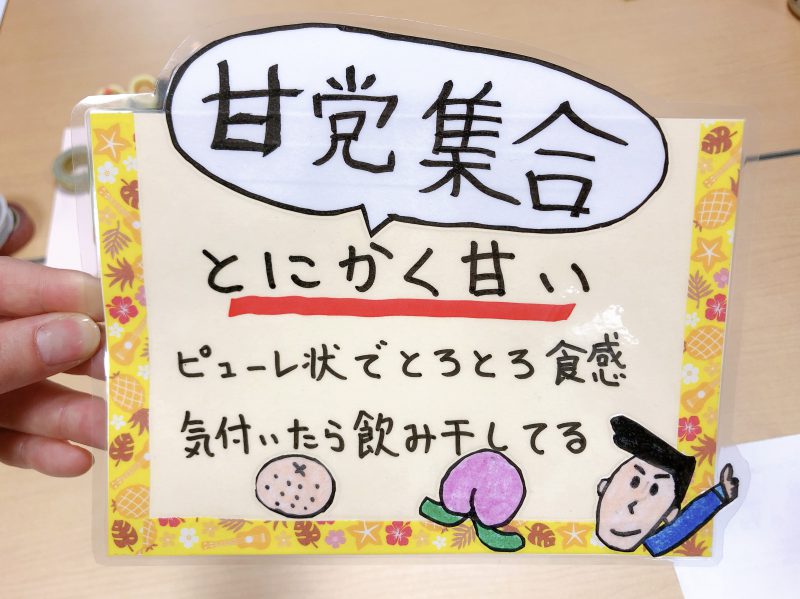 甘党集合
とにかく甘い
ピューレ状でとろとろ食感
気付いたら飲み干してる